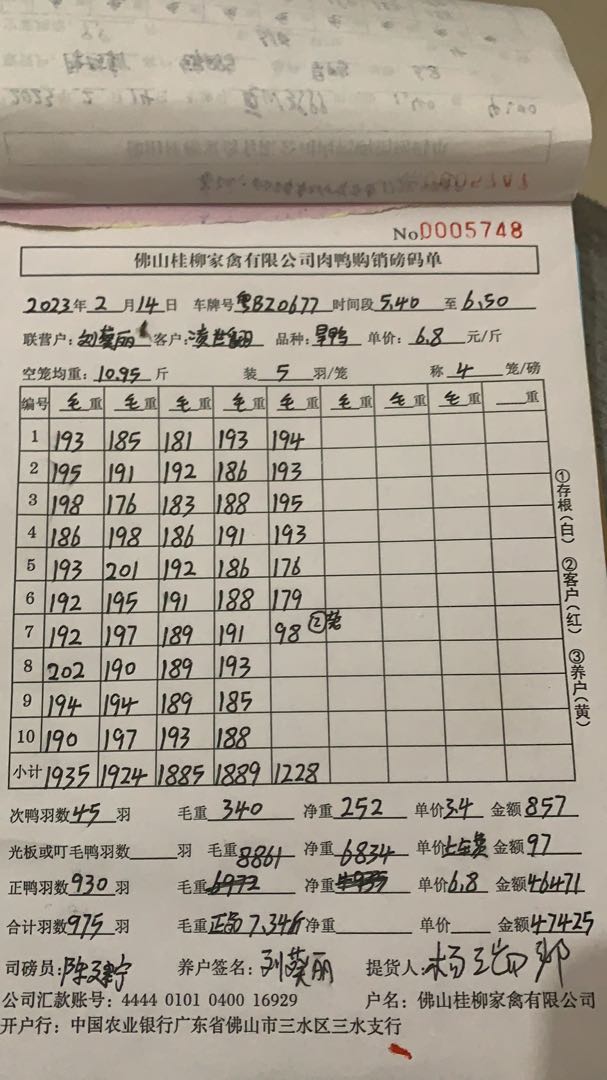 No 0005748
佛山桂柳家禽有限公司肉鸭购销磅码单
2023年 2 月 14 日 车牌号 粤BZ0677 时间段 5.40 至 6.50
联营户: 刘葵丽 客户: 品种: 旱鸭 单价: 6.8 元/斤
空笼均重: 10.95 斤 装 5 羽/笼 称 4 笼/磅
编号 毛重 毛重 毛重 毛重 毛重 毛重 毛重 毛重 重
1 193 185 181 193 194
2 195 191 192 186 193
3 198 176 183 188 195
4 186 198 186 191 193
5 193 201 192 186 176
6 192 195 191 188 179
7 192 197 189 191 98 ②笼
8 202 190 189 193
9 194 194 189 185
10 190 197 193 188
小计 1935 1924 1885 1889 1228
①存根(白) ②客户(红) ③养户(黄)
次鸭羽数 45 羽 毛重 340 净重 252 单价 3.4 金额 857
光板或叮毛鸭羽数 羽 毛重 8861 净重 6834 单价 上车费 金额 97
正鸭羽数 930 羽 毛重 6972 净重 单价 6.8 金额 46471
合计羽数 975 羽 毛重 正品 7.34斤 净重 单价 金额 47425
司磅员: 养户签名: 刘葵丽 提货人:
公司汇款账号: 4444 0101 0400 16929 户名: 佛山桂柳家禽有限公司
开户行: 中国农业银行广东省佛山市三水区三水支行